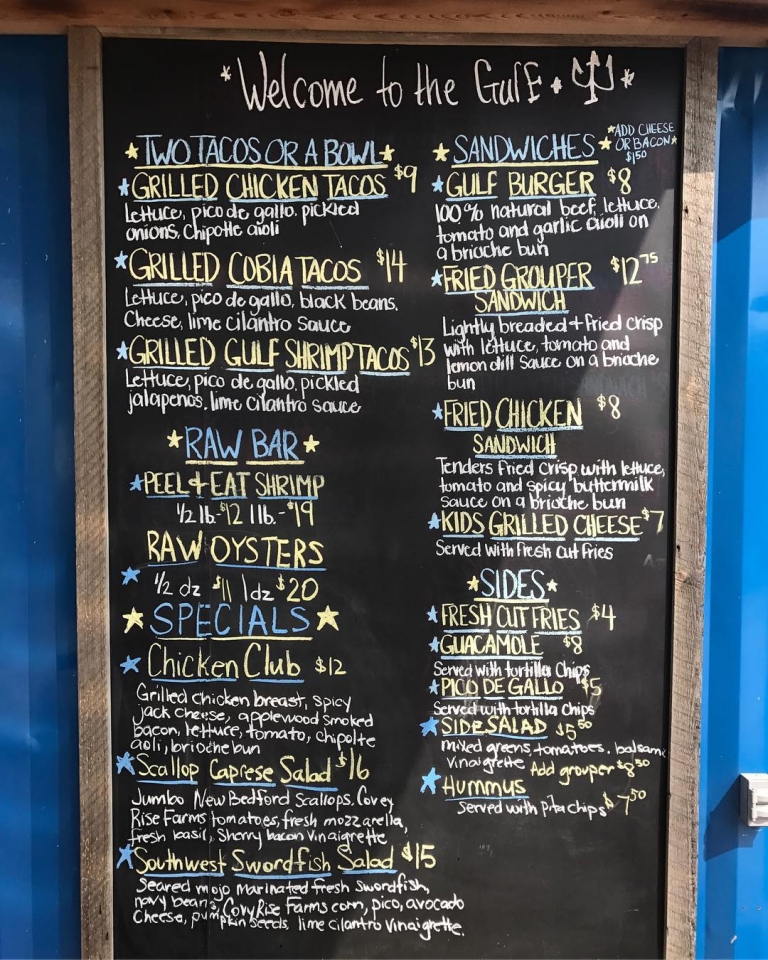 *Welcome to the Gulf.*
TWO TACOS OR A BOWL
GRILLED CHICKEN TACOS $9
Lettuce, pico de gallo, pickled
onions, chipotle aioli
GRILLED COBIA TACOS $14
Lettuce, pico de gallo, black beans,
Cheese, lime cilantro sauce
GRILLED GULF SHRIMP TACOS $13
Lettuce, pico de gallo, pickled
jalapenos, lime cilantro sauce
RAW BAR
PEEL + EAT SHRIMP
1/2 lb-$12 1 lb.-$19
RAW OYSTERS
1/2 dz $11 1dz $20
SPECIALS
Chicken Club $12
Grilled chicken breast, spicy
jack cheese, applewood smoked
bacon, lettuce, tomato, chipolte
aoli, brioche bun
Scallop Caprese Salad $16
Jumbo New Bedford Scallops, Covey
Rise Farms tomatoes, fresh mozzarella,
fresh basil, Sherry bacon vinaigrette
Southwest Swordfish Salad $15
Seared mojo marinated fresh swordfish,
navy beans, CovyRise Farms corn, pico, avocado
Cheese, pumpkin seeds, lime cilantro vinaigrette.
SANDWICHES
*ADD CHEESE
OR BACON*
$1.50
GULF BURGER $8
100% natural beef, lettuce,
tomato and garlic aioli on
a brioche bun
FRIED GROUPER $12.75
SANDWICH
Lightly breaded + fried crisp
with lettuce, tomato and
lemon dill sauce on a brioche
bun
FRIED CHICKEN $8
SANDWICH
Tenders fried crisp with lettuce,
tomato and spicy buttermilk
sauce on a brioche bun
KIDS GRILLED CHEESE $7
Served with fresh cut fries
SIDES
FRESH CUT FRIES $4
GUACAMOLE $8
Served with tortilla chips
PICO DE GALLO $5
Served with tortilla chips
SIDE SALAD $5.50
mixed greens, tomatoes, balsamic
vinaigrette Add grouper $8.50
Hummus
Served with Pita chips $7.50